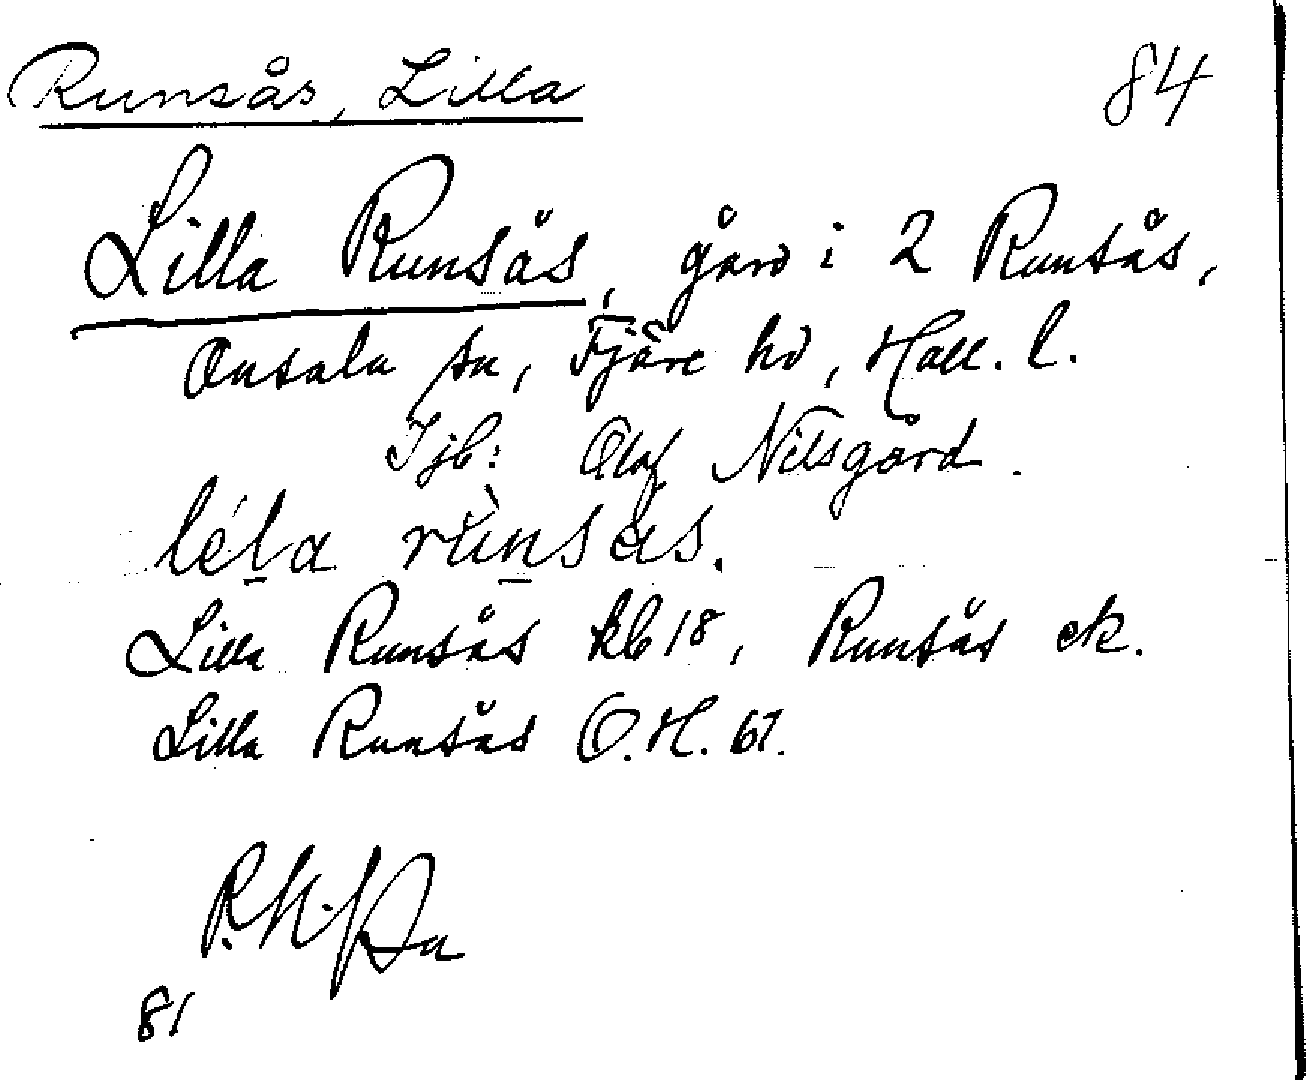 Runsås, Lilla 84
Lilla Runsås, gård i 2 Runsås,
Onsala sn, Fjäre hd, Hall. l.
Jjb: Olof Nilsgård.
léla rùnsås.
Lilla Runsås kb 18, Runsås ek.
Lilla Runsås O.H. 61.
81